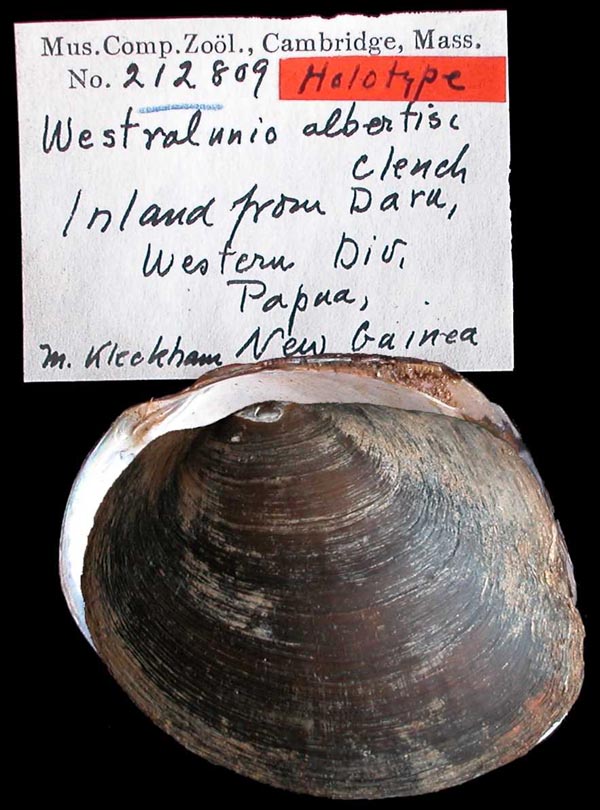 Mus.Comp.Zoöl., Cambridge, Mass.
No. 212809 Holotype
Westralunio albertisi
Clench
Inland from Daru,
Western Div.
Papua,
M. Kleckham New Guinea